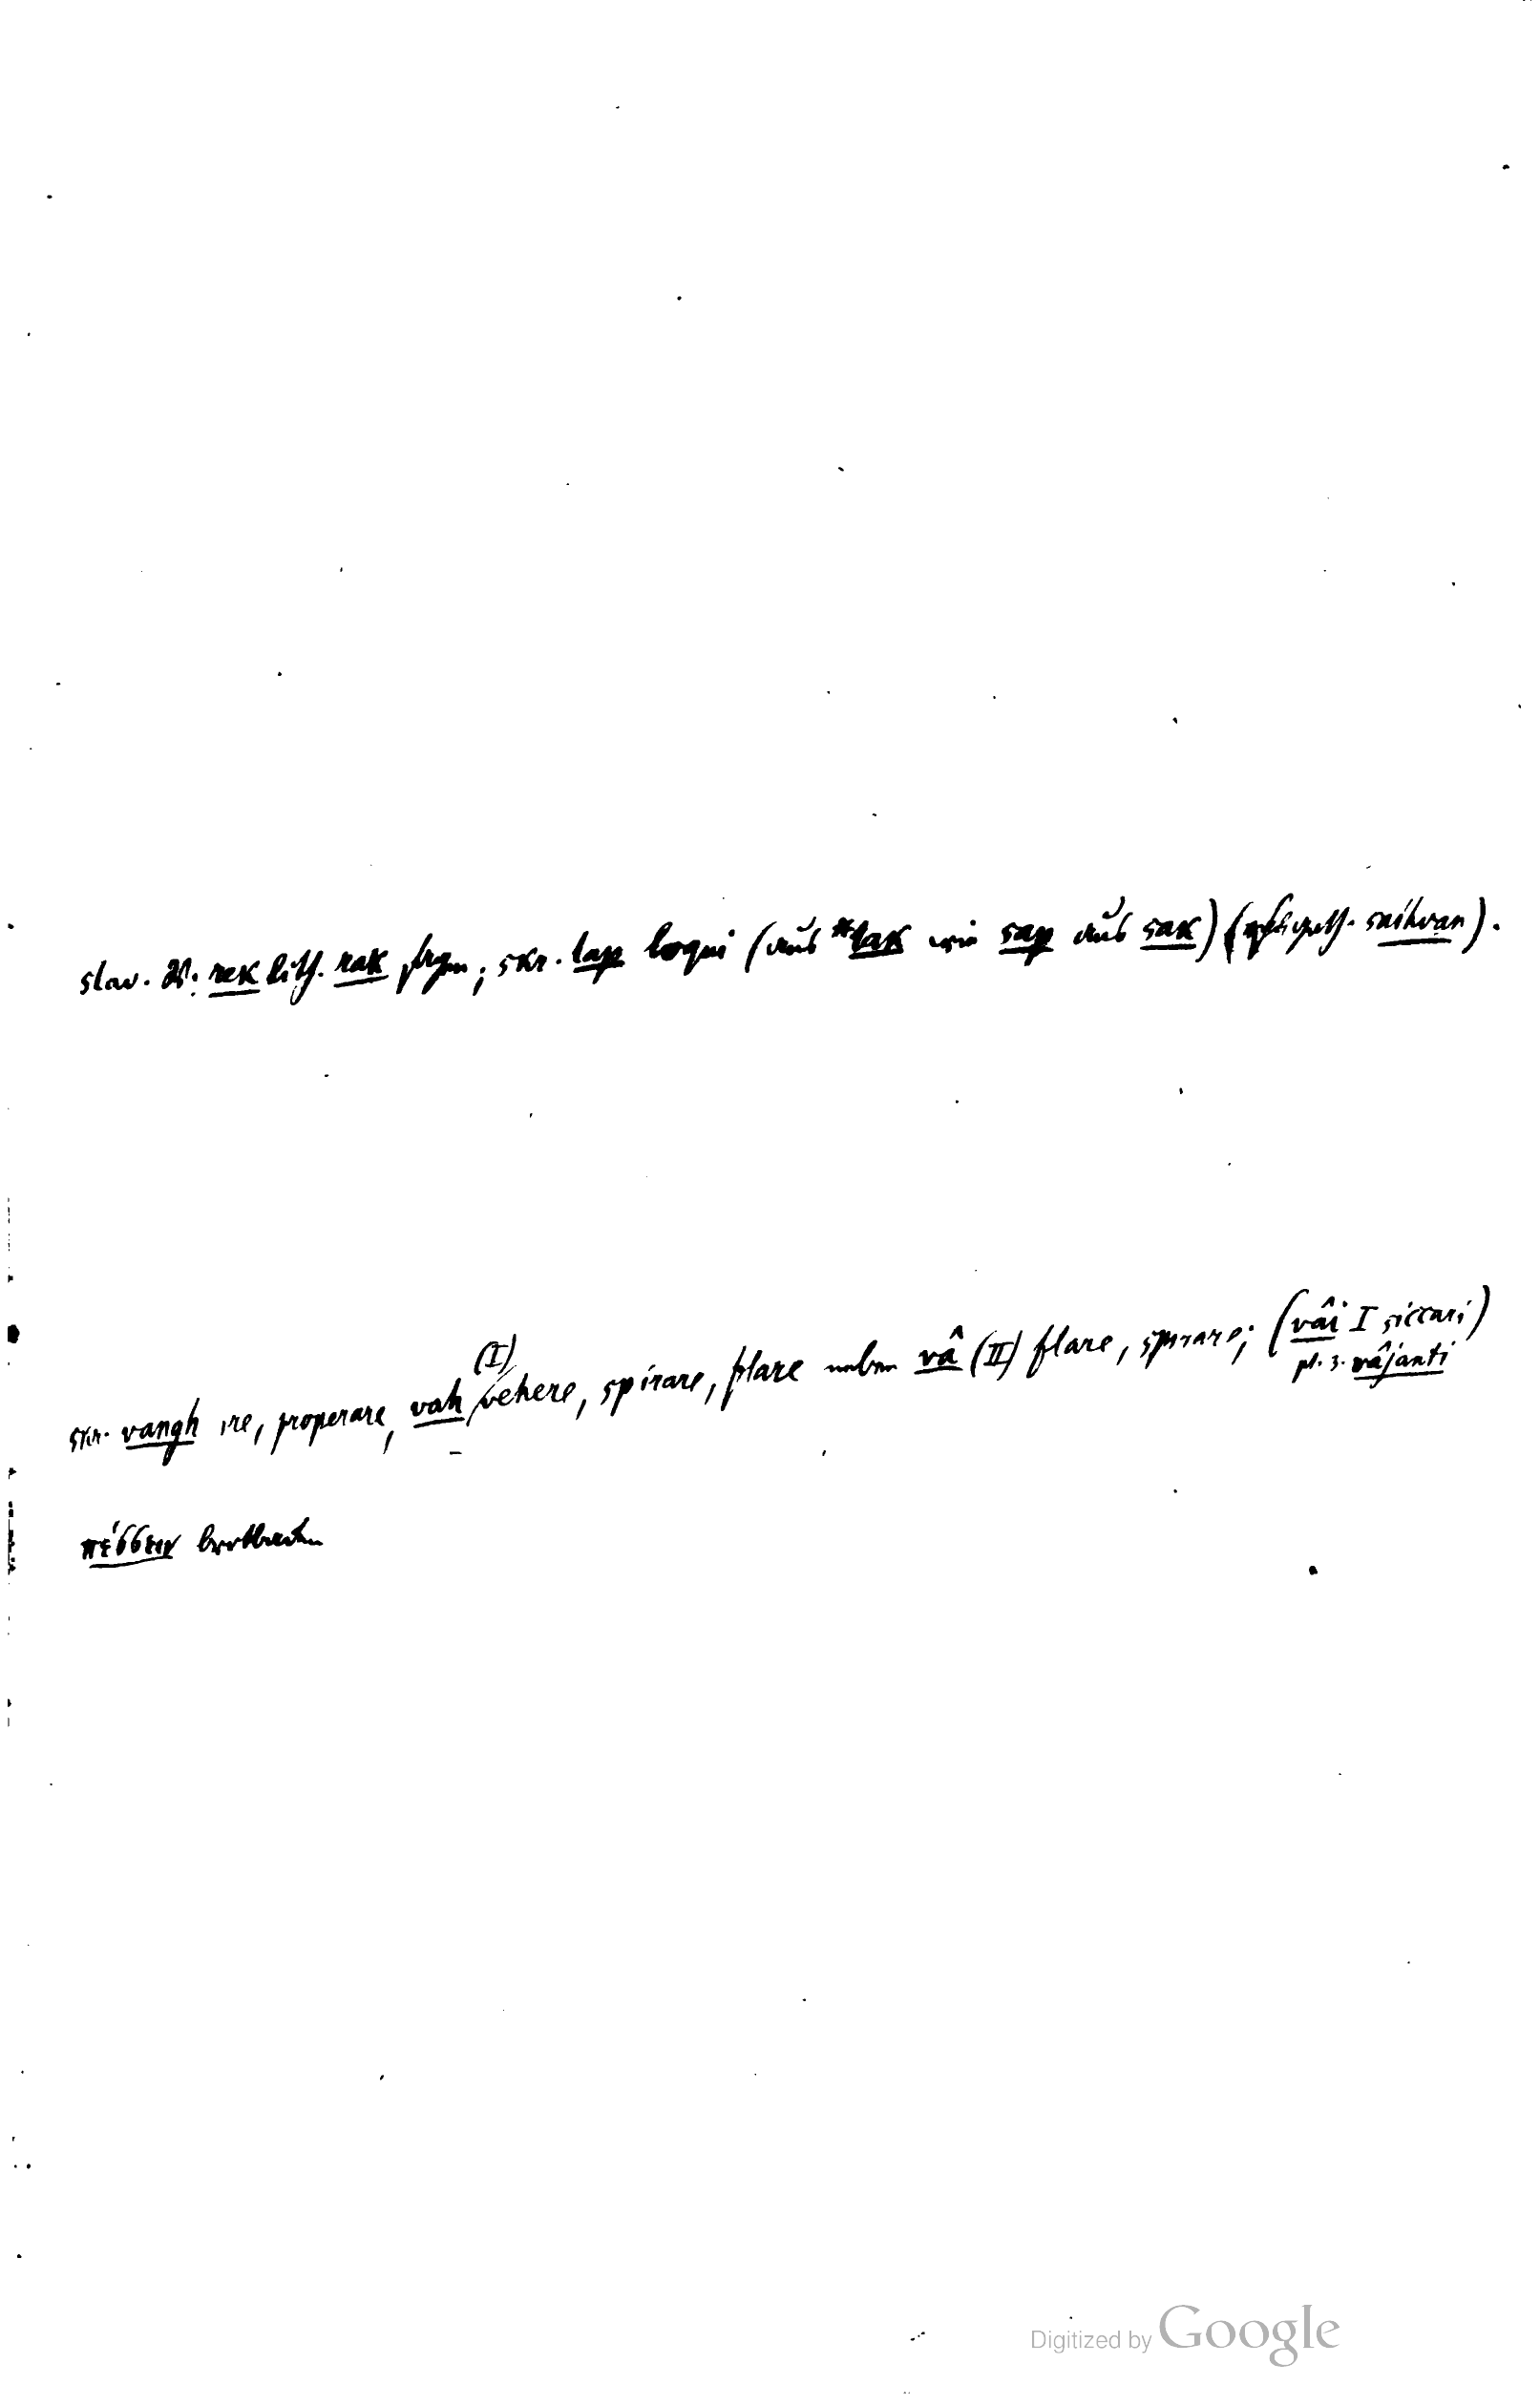 slav. W. rek lith. rak sagen; skr. lap loqui (aus *lak wie sap aus sak) (goth. saihvan).
(I)
skr. vangh ire, properare, vah vehere, spirare, flare neben vâ (II) flare, spirare; (vâi I siccari)
pl. 3. vâjanti
πέσσειν brotbacken
Digitized by Google